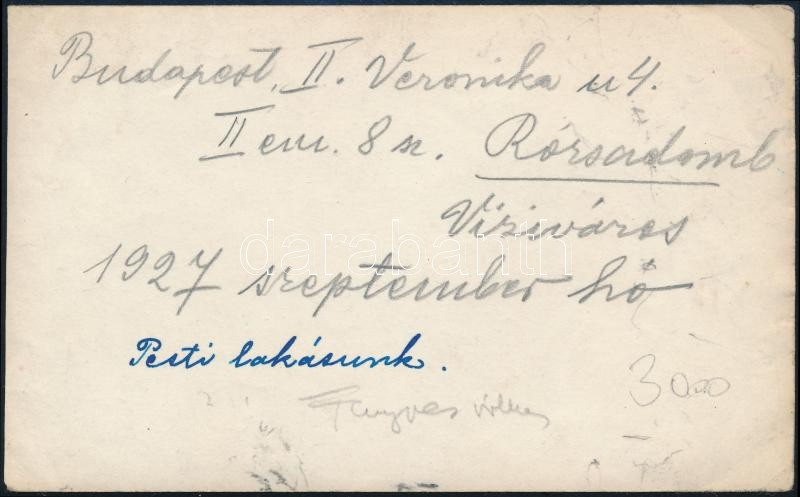 Budapest, II. Veronika u 4.
II em. 8 sz. Rózsadomb
Víziváros
darabanth
1927 szeptember hó
Pesti lakásunk.
3000